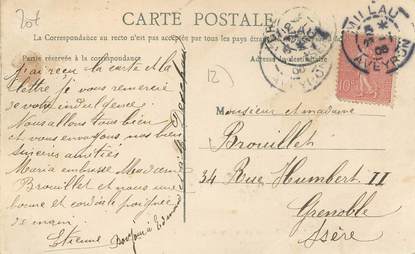 CARTE POSTALE
La Correspondance au recto n'est pas acceptée par tous les pays étran
Partie réservée à la correspondance
Adresse du destinataire
MILLAU
AVEYRON
08
10
12
J'ai reçu la carte et la
lettre je vous remercie
de votre indulgence.
Nous allons tous bien
et vous envoyons nos bien
sincères amitiés
Maria embrasse Madam
Brouillet et nous une
bonne et cordiale poignée
de main.
Etienne
Bonjour à
Monsieur et madame
Brouillet
34 Rue Humbert II
Grenoble
Isère